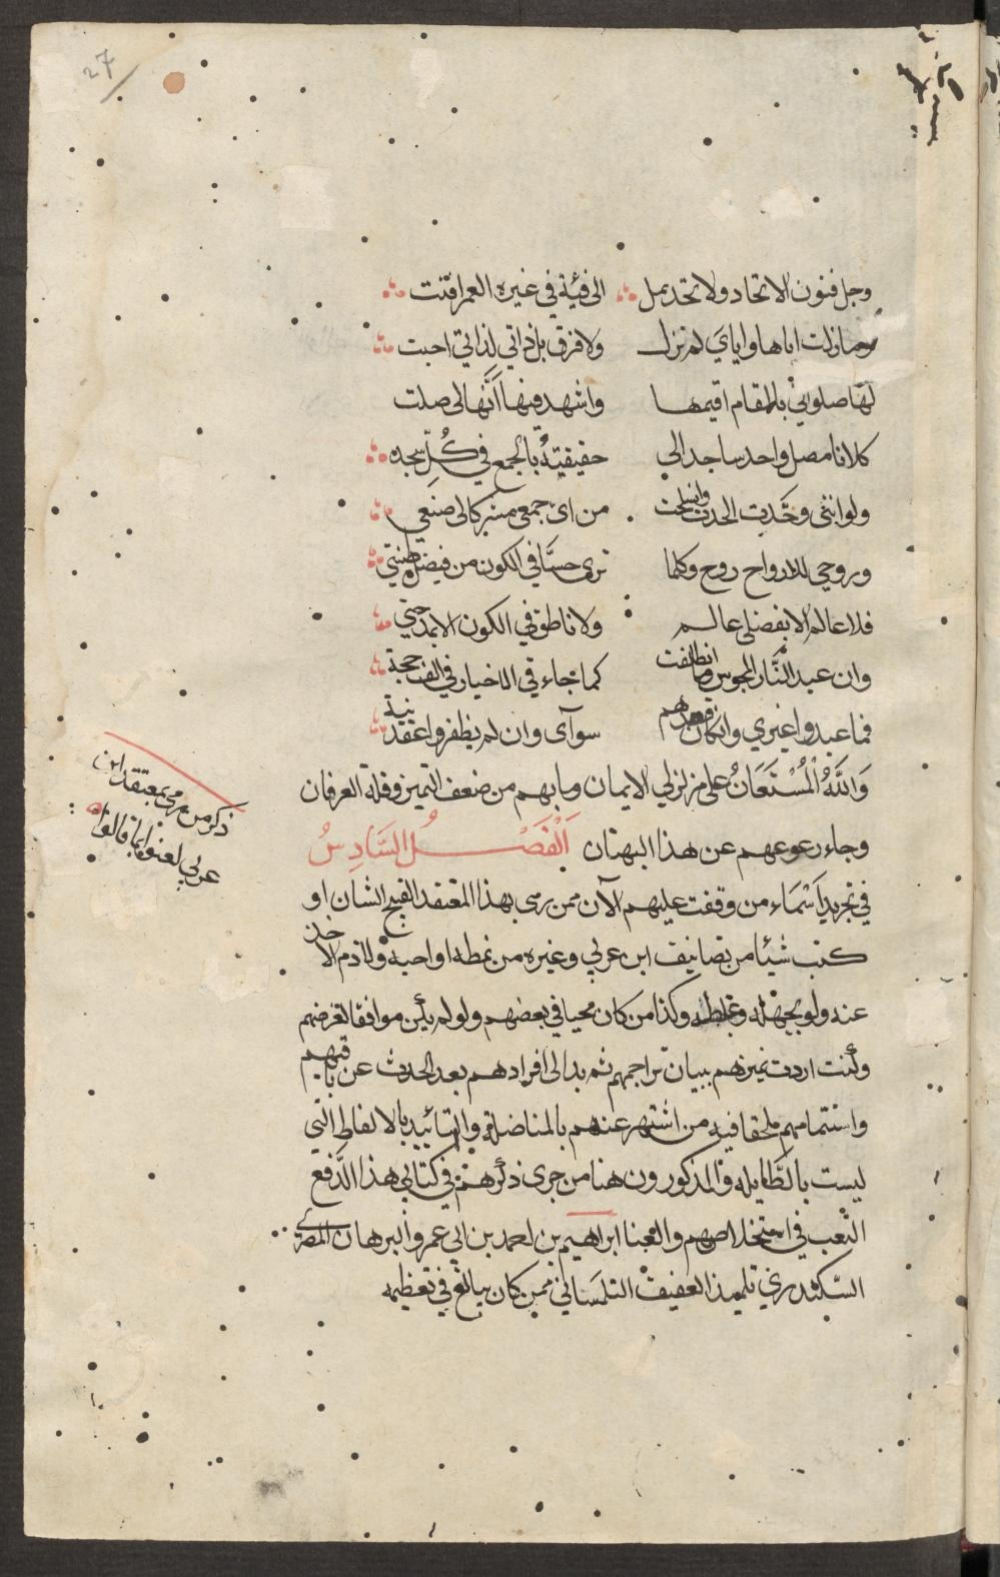 27
وجل فنون الاتحاد ولا تحد بمل الى فئية في غيره العمر افنت
وما زلت اياها واياي لم تزل ولا فرق بل ذاتي لذاتي احبت
لها صلواتي بالمقام اقيمها واشهد فيها انها لي صلت
كلانا مصل واحد ساجد الي حقيقته بالجمع في كل سجده
ولو انني وحدت الحدت وانسلخت من اي جمعي مشركا لي صنعي
وروحي للارواح روح وكلما ترى حسنا في الكون من فيض طينتي
فلا عالم الا بفضلي عالم ولا ناطق في الكون الا بمدحتي
وان عبد النار المجوس وما انطفت كما جاء في الاخبار في الف حجة
فما عبدوا غيري وان كان قصدهم سوآى وان لم يظفروا عقد نية
وَاللَّهُ الْمُسْتَعَانُ على مزلزلي الايمان وما بهم من ضعف التميز وقلة العرفان
وجاء رعوعهم عن هذا البهتان اَلْفَصْلُ السَّادِسُ
في تجريد اَسْمَاء من وقفت عليهم الآن ممن رمي بهذا المعتقد القبيح الشان او
كتب شيئا من تصانيف ابن عربي وغيره من نمطه او احبه ولازم الاخذ
عنه ولو بجهله وغلطه وكذا من كان محبا في بعضهم ولو لم يكن موافقا لغرضهم
وكنت اردت تميزهم ببيان تراجمهم ثم بدا لي افرادهم بعد الحديث عن باقيهم
واستتمامهم ملحقا فيه من اشتهر عنهم بالمناضلة والتائيد بالالفاظ التي
ليست بالطايله والمذكورون هنا من جرى ذكرهم في كتابي هذا الدفع
التعب في استخلاصهم والعنا ابراهيم بن احمد بن ابي عمرو البرهان المصري
السكندري تلميذ العفيف التلمساني ممن كان يبالغ في تعظيمه
ذكر من رمي بمعتقد ابن
عربي لعنه